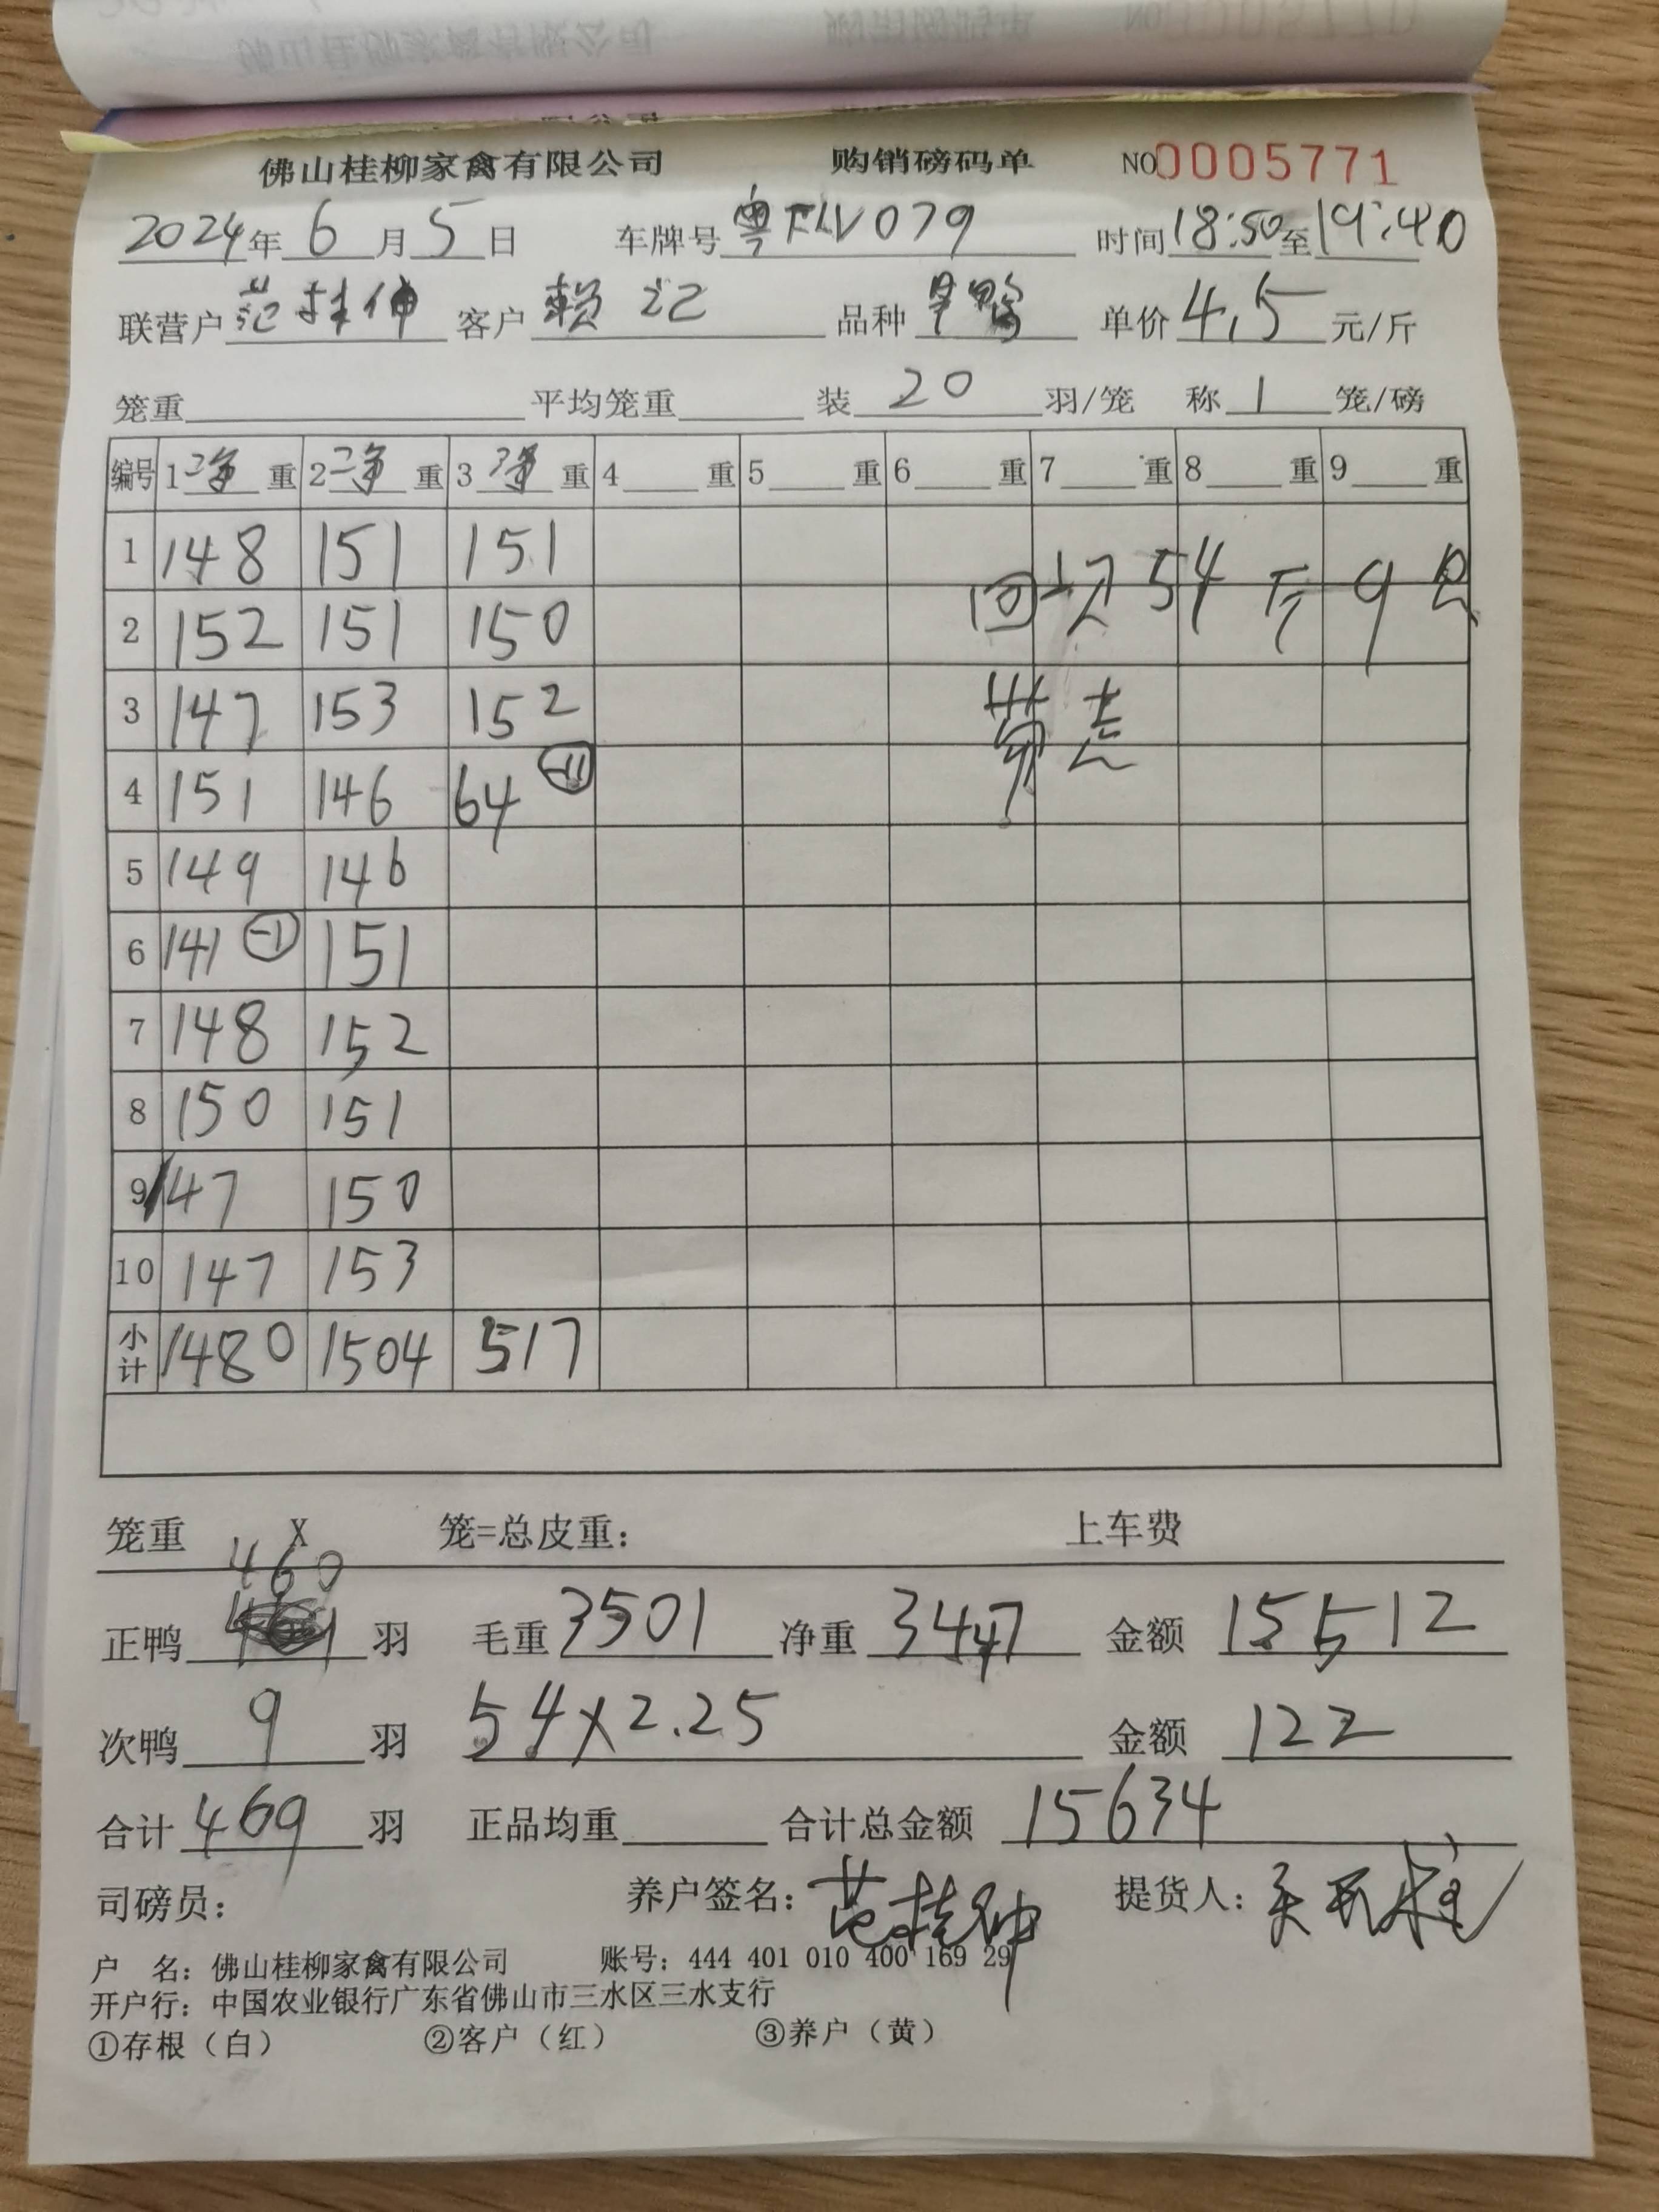 佛山桂柳家禽有限公司 购销磅码单 NO0005771
2024年6月5日 车牌号粤FLV079 时间18:50至19:40
联营户范桂伸 客户赖记 品种旱鸭 单价4.5元/斤
笼重 平均笼重 装20羽/笼 称1笼/磅
编号 1净重 2净重 3净重 4重 5重 6重 7重 8重 9重
1 148 151 151
回次54斤9只
2 152 151 150
3 147 153 152
4 151 146 64 -11
5 149 146
6 141 -1 151
7 148 152
8 150 151
9 147 150
10 147 153
小计 1480 1504 517
笼重 X 笼=总皮重: 上车费
正鸭460羽 毛重3501 净重3447 金额15512
次鸭9羽 54×2.25 金额122
合计469羽 正品均重 合计总金额15634
司磅员: 养户签名:范桂伸 提货人:
户 名:佛山桂柳家禽有限公司 账号:444 401 010 400 169 29
开户行:中国农业银行广东省佛山市三水区三水支行
①存根(白) ②客户(红) ③养户(黄)